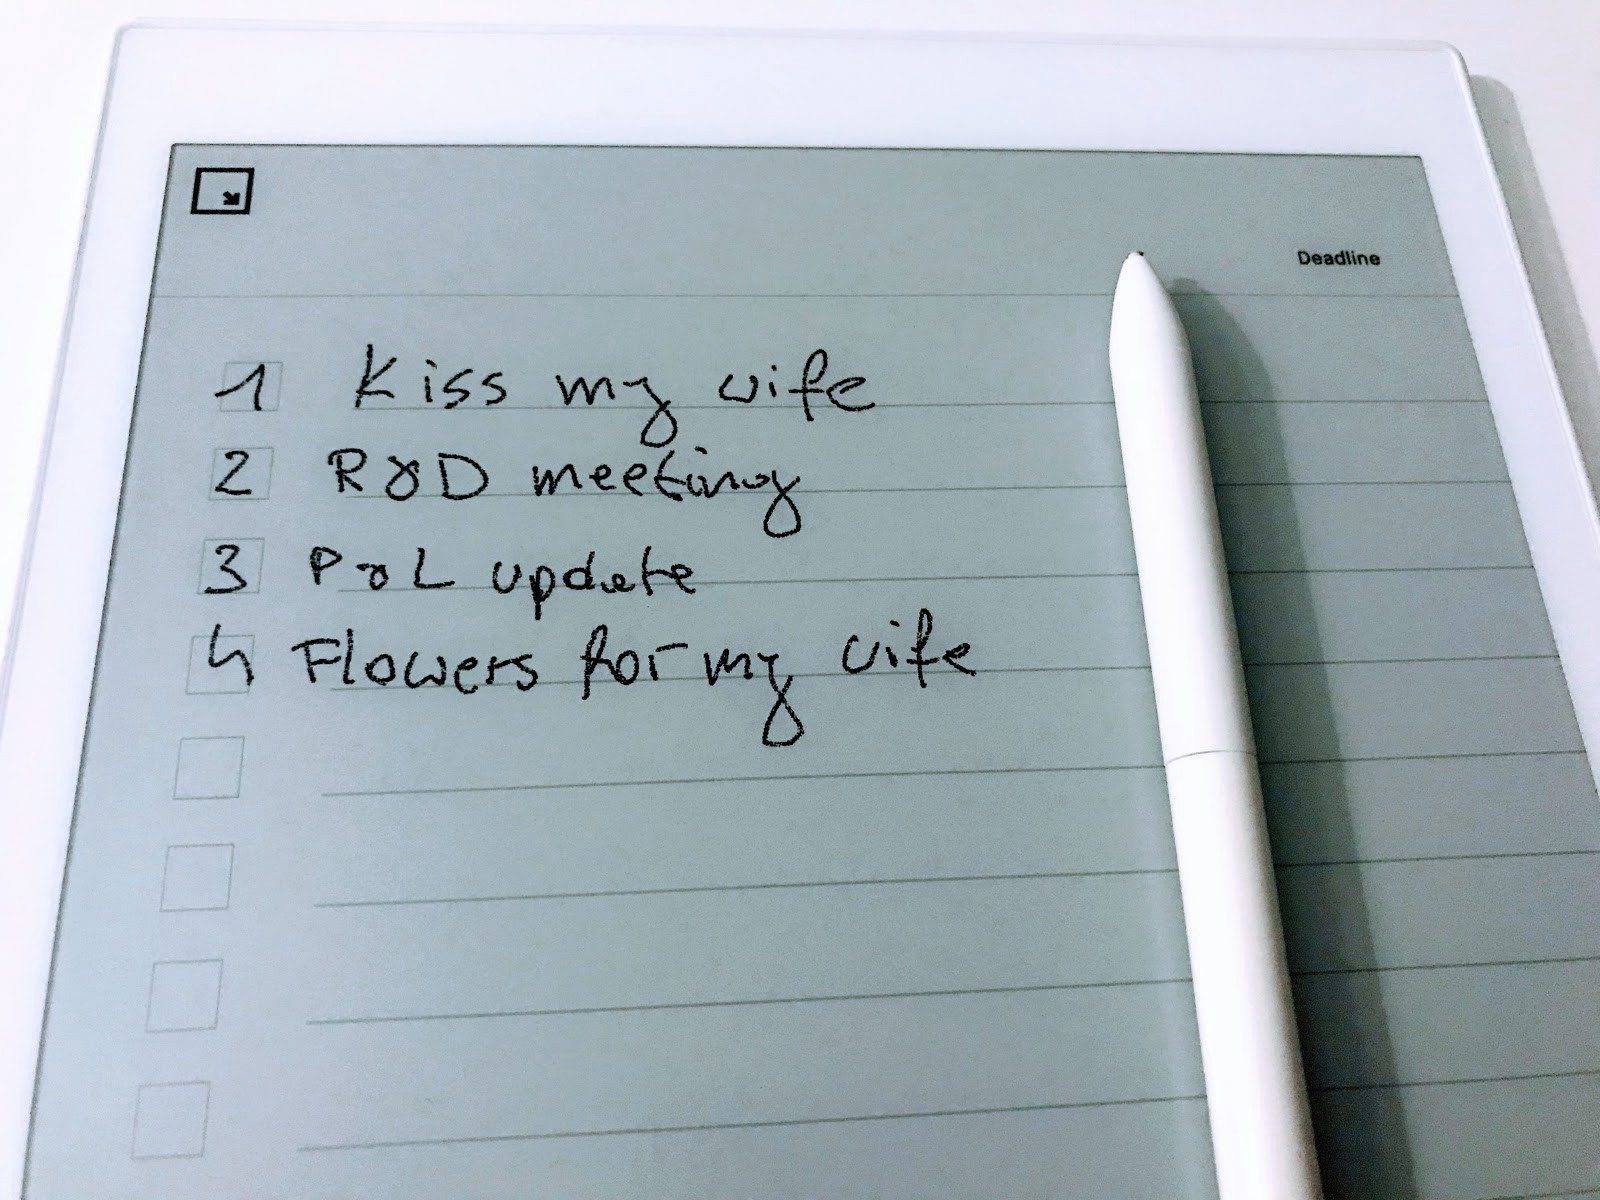 Deadline
1 Kiss my wife
2 R&D meeting
3 P&L update
4 Flowers for my wife